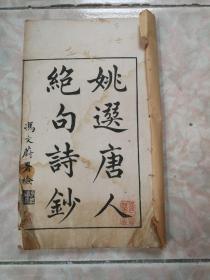 姚選唐人
絕句詩鈔
馮文蔚署檢